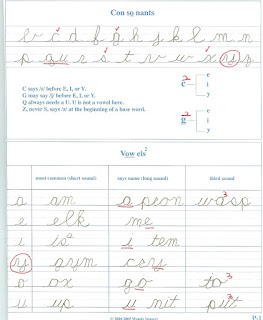 Con so nants
b c d f g h j k l m n
p qu r s t v w x y z
C says /s/ before E, I, or Y.
G may say /j/ before E, I, or Y.
Q always needs a U. U is not a vowel here.
Z, never S, says /z/ at the beginning of a base word.
2
c
e
i
y
2
g
e
i
y
Vow els 2
most common (short sound) says name (long sound) third sound
a am a pron wasp 3
e elk me
i is 2 i tem
y gym cry
o ox go to 3
u up u nit put 3
P-1